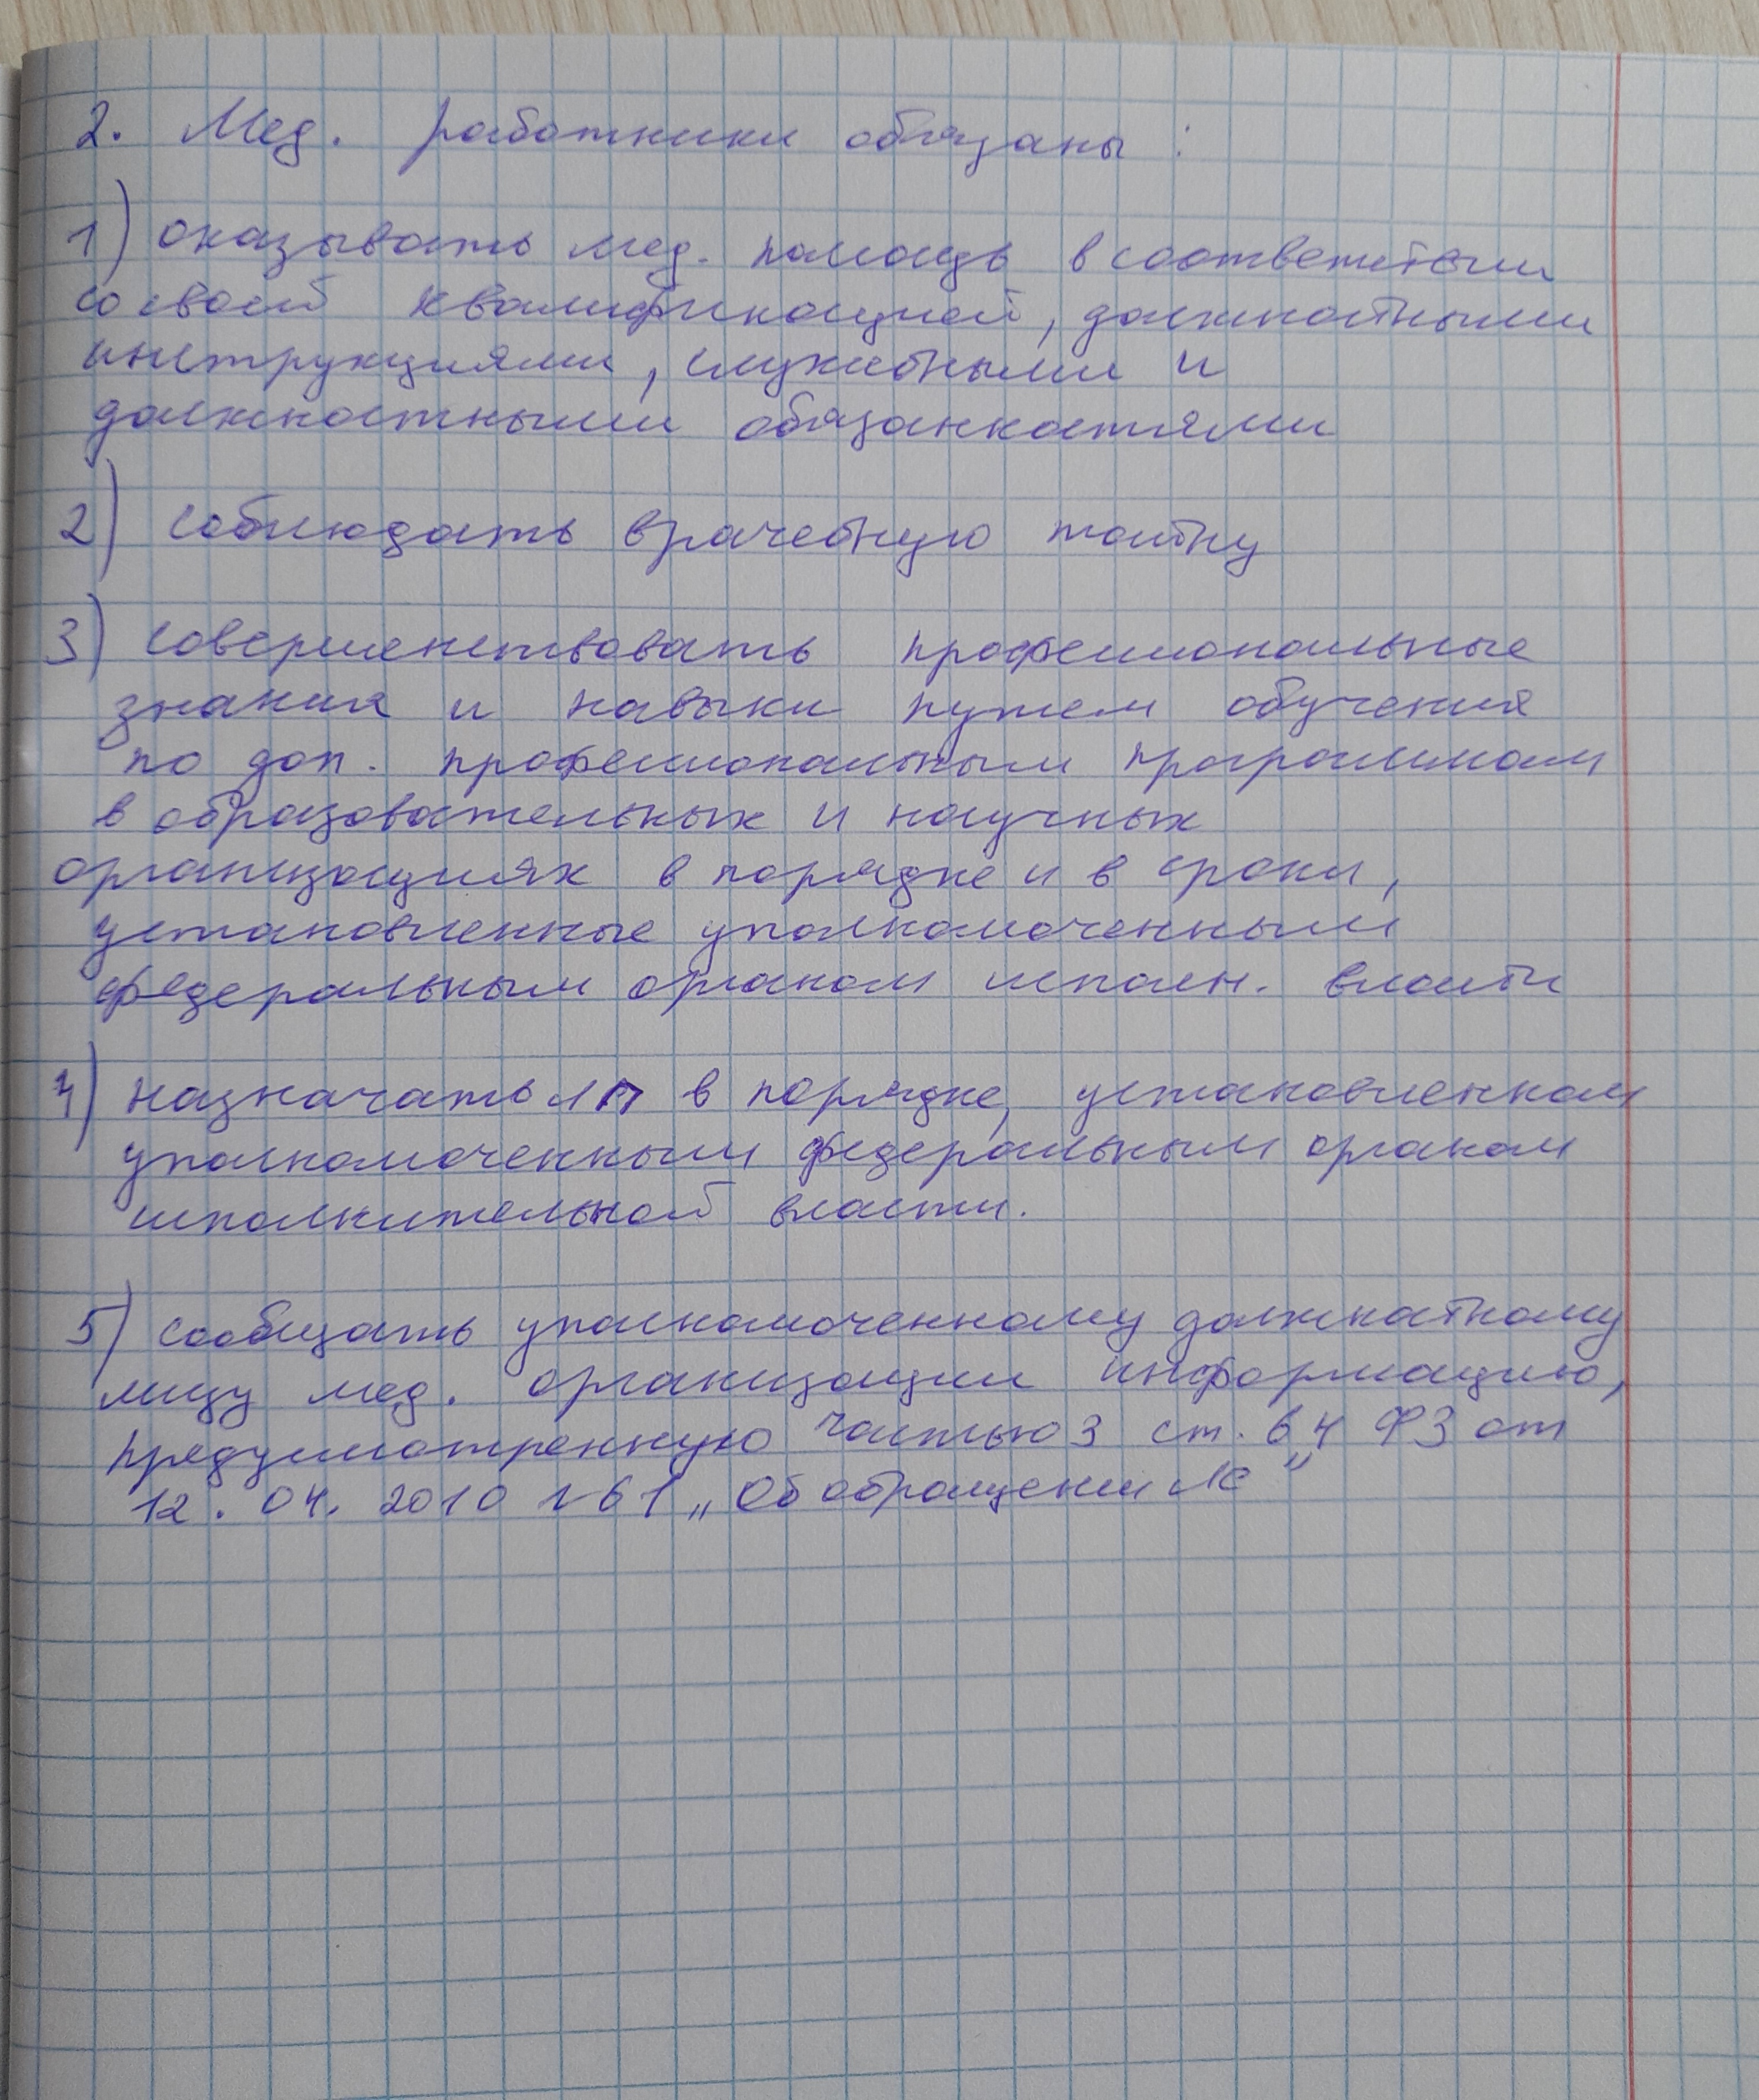 2. Мед. работники обязаны:
1) оказывать мед. помощь в соответствии
со своей квалификацией, должностными
инструкциями, служебными и
должностными обязанностями
2) соблюдать врачебную тайну
3) совершенствовать профессиональные
знания и навыки путем обучения
по доп. профессиональным программам
в образовательных и научных
организациях в порядке и в сроки,
установленные уполномоченным
федеральным органом исполн. власти
4) назначать ЛП в порядке, установленном
уполномоченным федеральным органом
исполнительной власти.
5) сообщать уполномоченному должностному
лицу мед. организации информацию,
предусмотренную частью 3 ст. 64 ФЗ от
12. 04. 2010 № 61 „Об обращении ЛС"